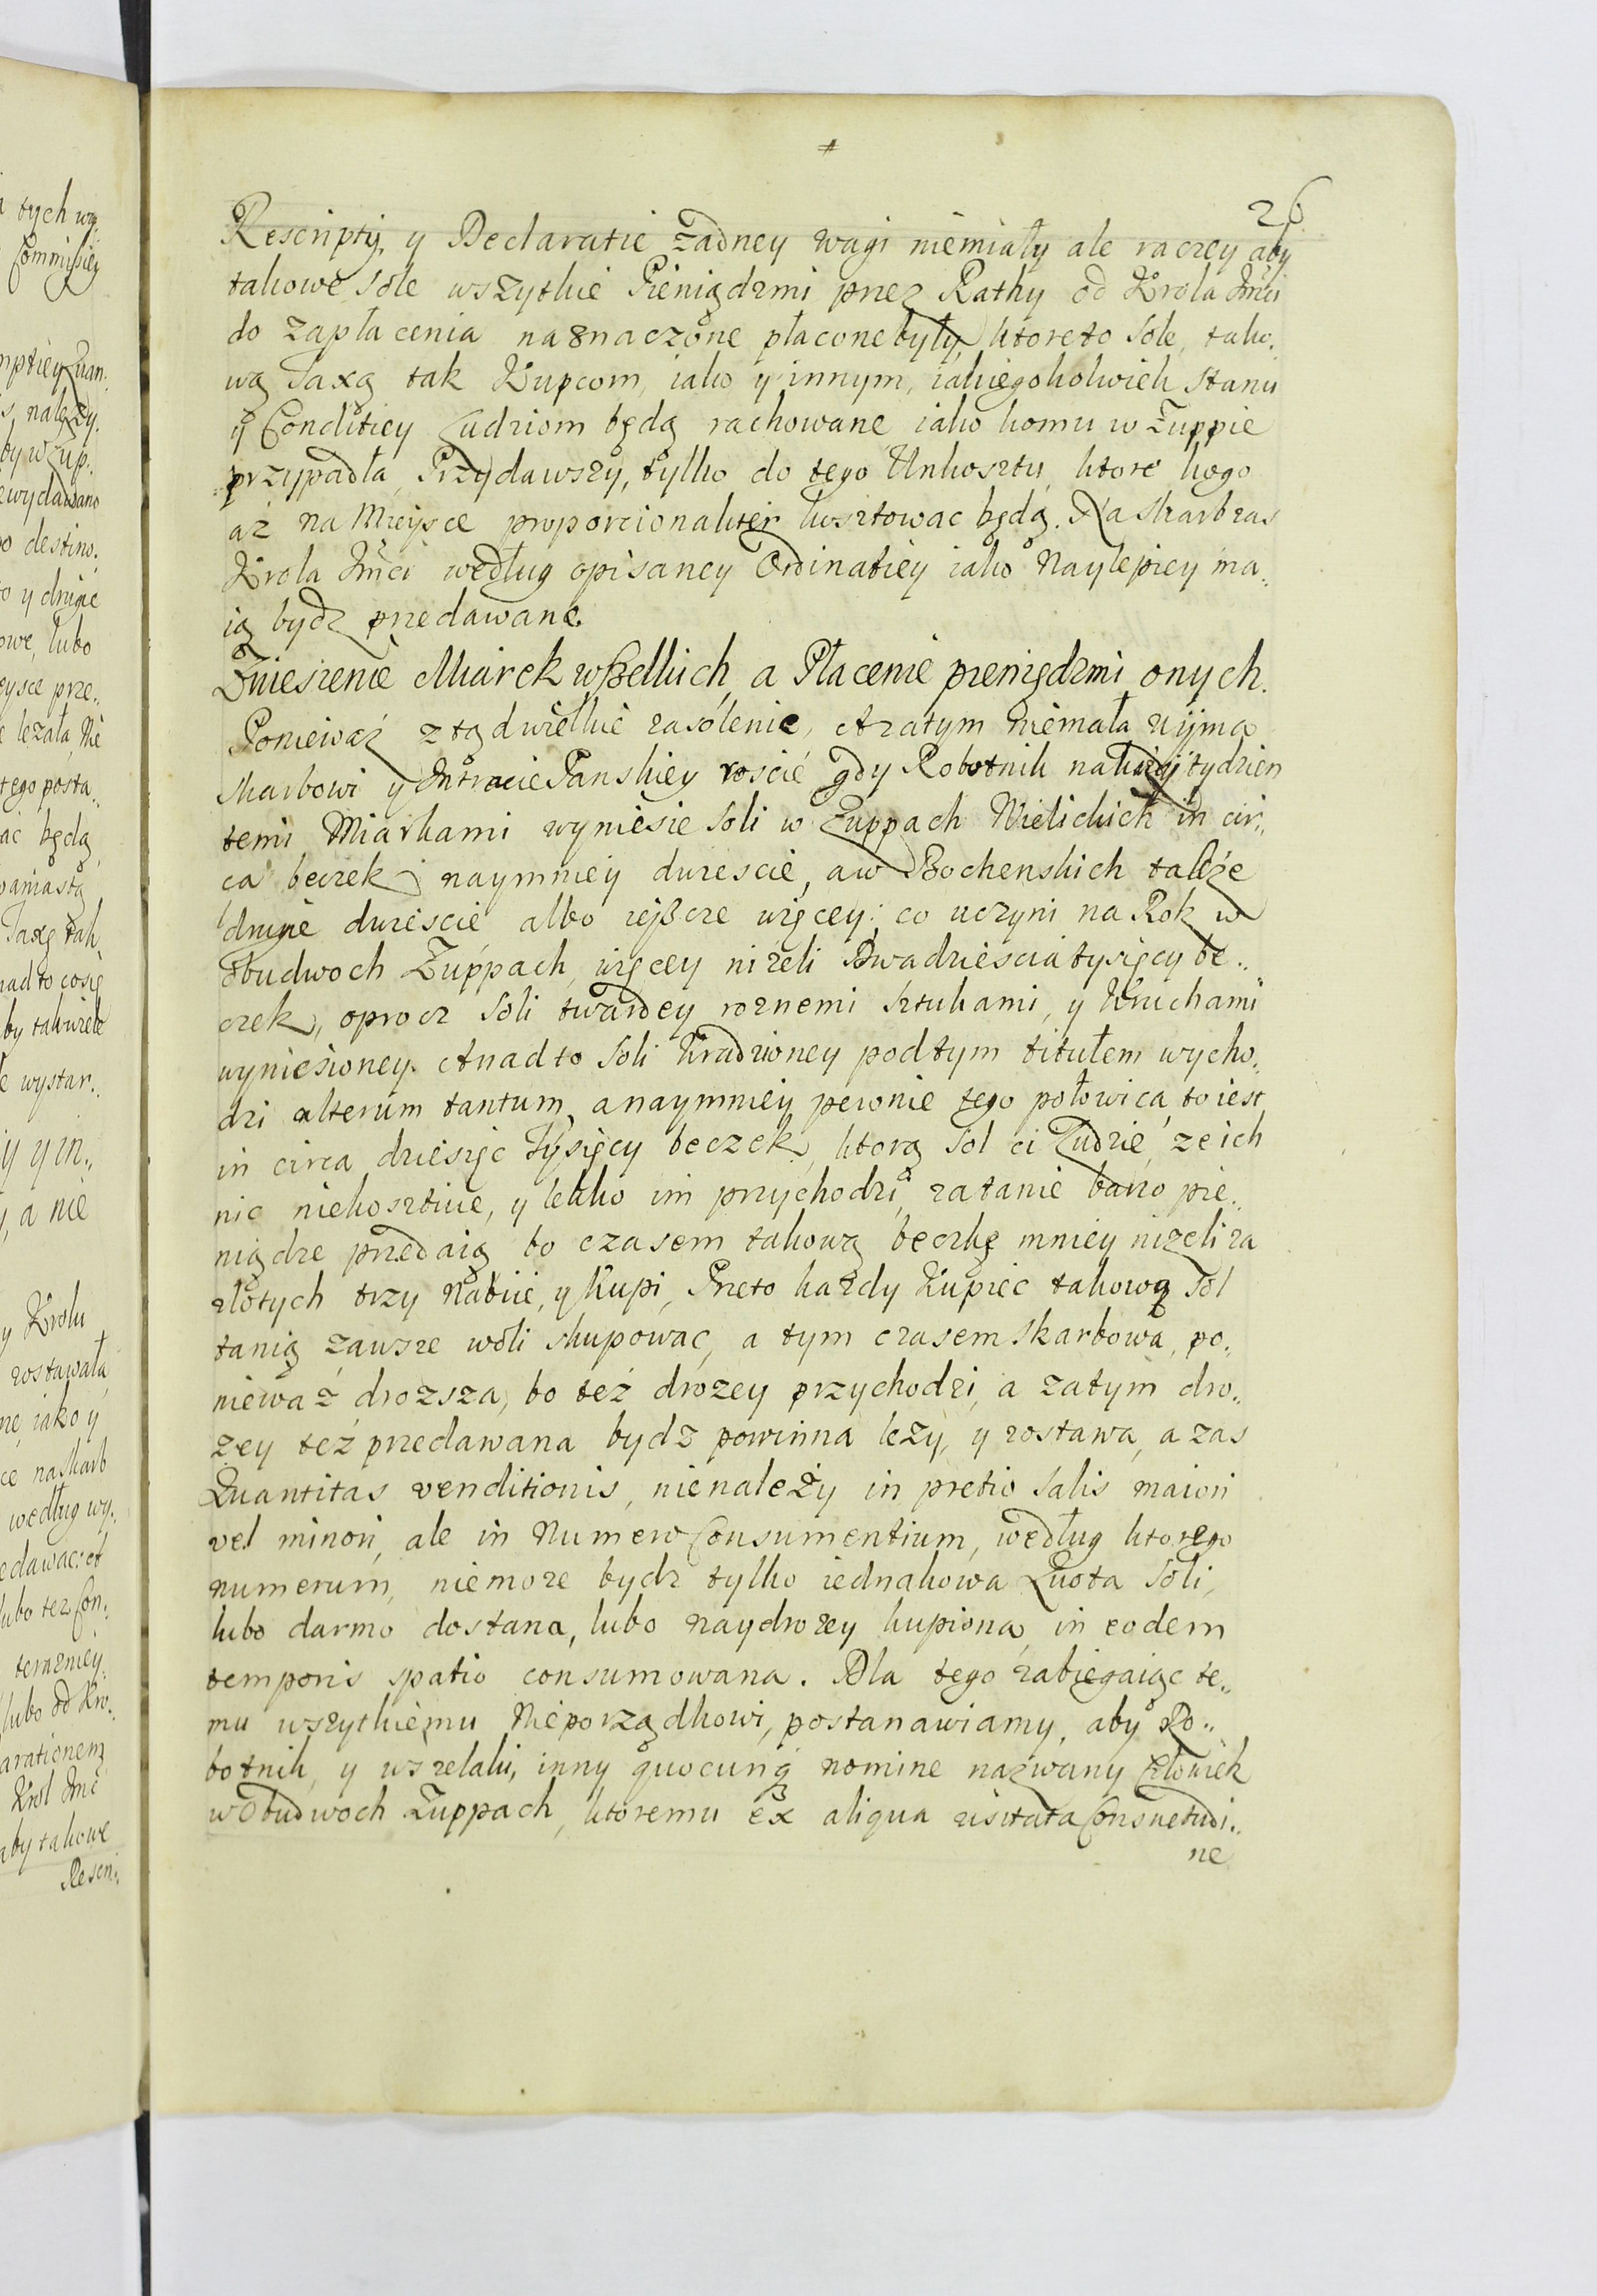 26
Rescripty, y Declaratie żadney wagi niemiały ale raczey aby
takowe sole wszytkie Pieniądzmi przez Rathy od Krola Jmci
do zapłacenia naznaczone płacone były, ktoreto sole, tako,
wą Taxą tak Kupcom, iako y innym, iakiegokolwiek Stanu
y Conditiey Ludziom będą rachowane iako komu w Żuppie
przypadła, Przydawszy, tylko do tego Unkosztu, ktore kogo
aż na Mieysce proporcionaliter kosztować będą. Na Skarb zas
Krola Jmci według opisaney Ordinatiey iako Naylepiey ma,
ią bydz przedawane.
Zniesienie Miarek wszelkich, a Płacenie pieniędzmi onych.
Ponieważ z tąd wielkie zasolenie, A zatym niemała uyma
Skarbowi y Intracie Panskiey roscie gdy Robotnik na każdy tydzien
temi Miarkami wyniesie soli w Żuppach Wielickich in cir„
ca beczek naymniey dwiescie, a w Bochenskich także
drugie dwiescie albo ieszcze więcey; co uczyni na Rok w
obudwoch Żuppach, więcey niżeli Dwadziescia tysięcy be„
czek, oprocz soli twardey roznemi sztukami, y Kruchami
wyniesioney. A nad to soli Kradzioney pod tym titułem wycho,
dzi alterum tantum, a naymniey pewnie tego połowica, to iest
in circa dziesięc Tysięcy beczek, ktorą sol ci Ludzie, ze ich
nic niekosztuie, y lekko im przychodzi, za tanie barzo pie„
niądze przedaią bo czasem takową beczkę mniey niżeli za
złotych trzy Nabiie, y Kupi, Przeto każdy Kupiec takową sol
tanią zawsze woli skupować, a tym czasem Skarbowa, po„
nieważ drozsza, bo też drożey przychodzi, a zatym dro„
żey też przedawana bydz powinna leży, y zostawa, a zas
Quantitas venditionis, nienależy in pretio salis maiori
vel minori, ale in Numero Consumentium, według ktorego
numerum, niemoze bydz tylko iednakowa Quota soli,
lubo darmo dostana, lubo naydrożey kupiona, in eodem
temporis spatio consumowana. Dla tego zabiegaiąc te„
mu wszytkiemu Nieporządkowi, postanawiamy, aby Ro„
botnik, y wszelaki, inny quocunq nomine nazwany Człowiek
w Obudwoch Żuppach, ktoremu ex aliqua usitata Consuetudi„
ne